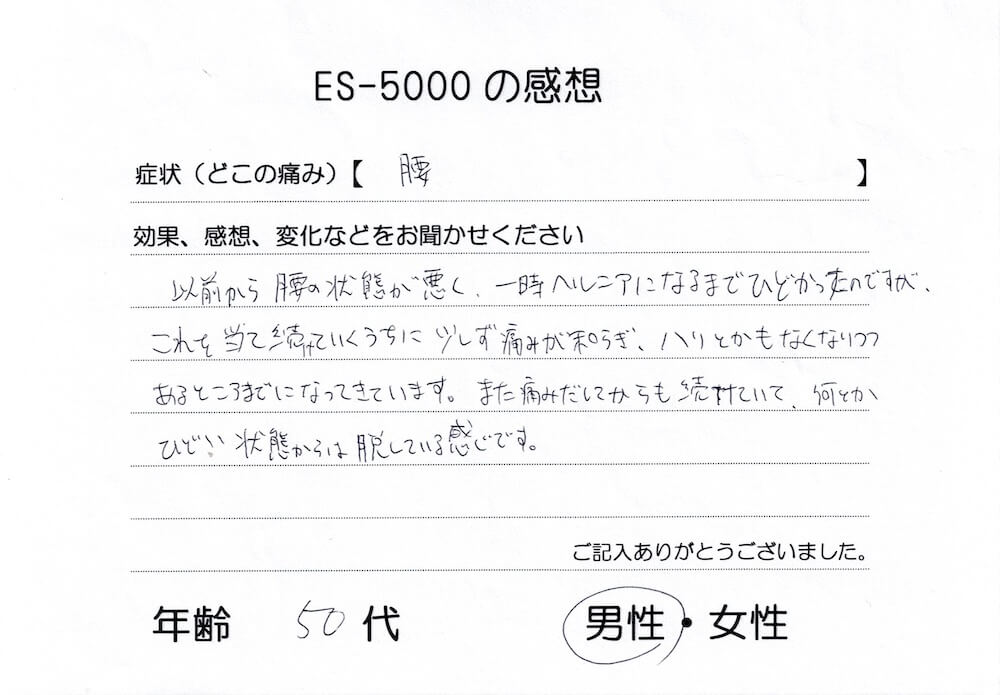 ES-5000の感想
症状（どこの痛み）【 腰 】
効果、感想、変化などをお聞かせください
以前から腰の状態が悪く、一時ヘルニアになるまでひどかったのですが、
これを当て続けていくうちに少しず痛みが和らぎ、ハリとかもなくなりつつ
あるところまでになってきています。また痛みだしてからも続けていて、何とか
ひどい状態からは脱している感じです。
ご記入ありがとうございました。
年齢 50代 男性・女性